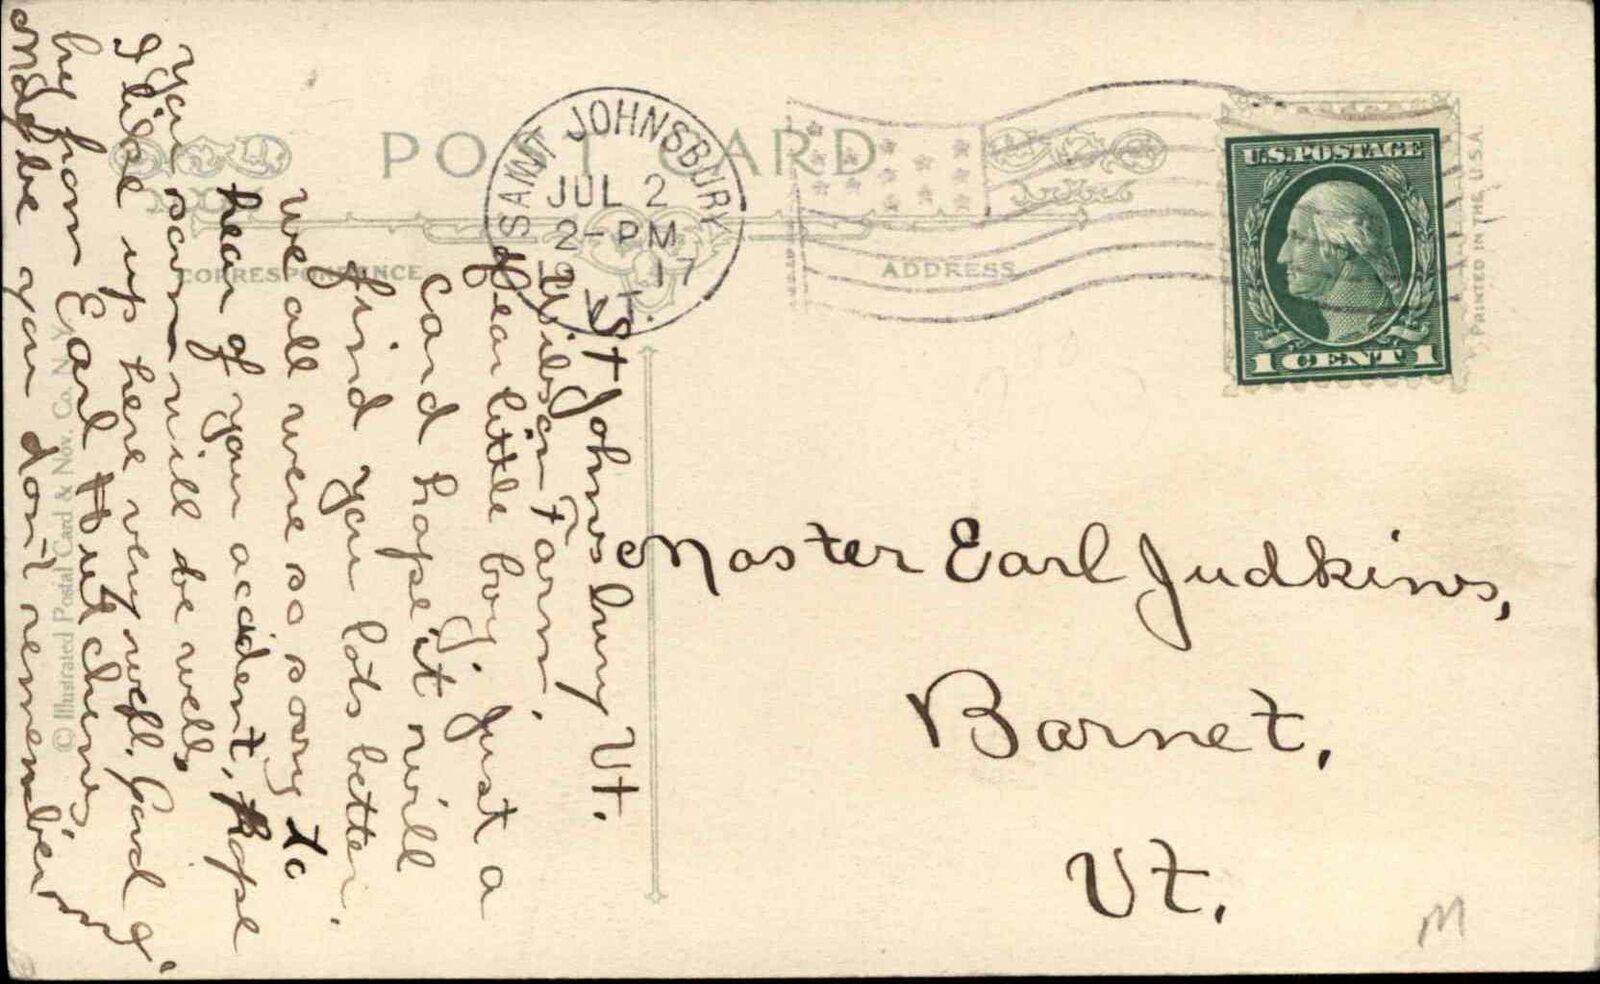 POST CARD
CORRESPONDENCE
ADDRESS
SAINT JOHNSBURY
JUL 2
2-PM
1917
VT.
U.S. POSTAGE
1 CENT 1
PRINTED IN THE U.S.A.
St Johnsbury Vt.
Wilson Farm.
Dear little boy. Just a
card hope it will
find you lots better.
We all were so sorry to
hear of you accident, hope
you soon will be well,
I like up here very well. Good
by from Earl Hutchins
Maybe you don't remember me
Master Earl Judkins,
Barnet,
Vt.
M
© Illustrated Postal Card & Nov. Co. N.Y.